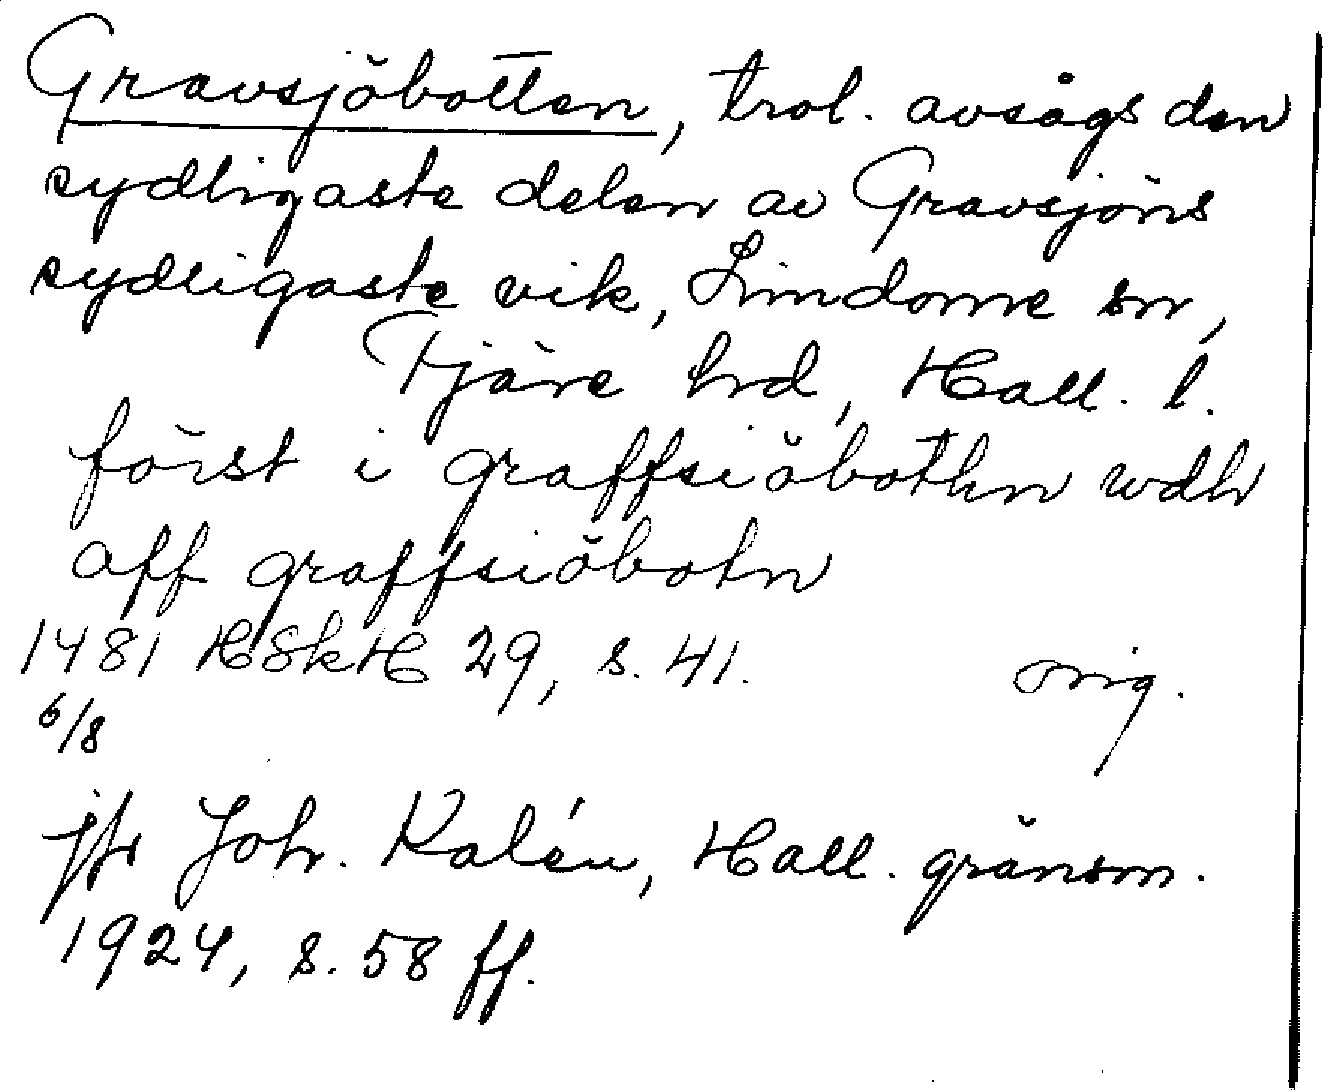 Gravsjöbotten, trol. avsågs den
sydligaste delen av Gravsjöns
sydligaste vik, Lindome sn,
Fjäre hrd, Hall. l.
först i graffsiöbothn wdh
aff graffsiöbotn
1481 HSkH 29, s. 41. orig.
6/8
jfr Joh. Kalén, Hall. gränsm.
1924, s. 58 ff.